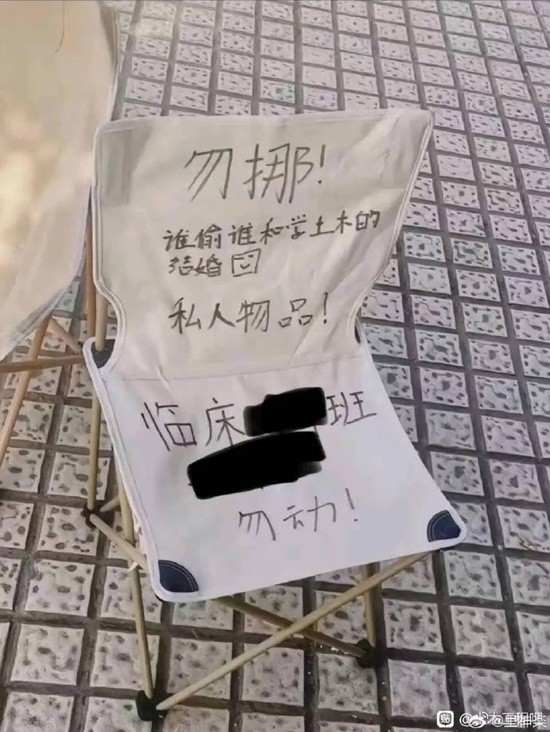 勿挪!
谁偷谁和学土木的
结婚
私人物品!
临床 班
勿动!